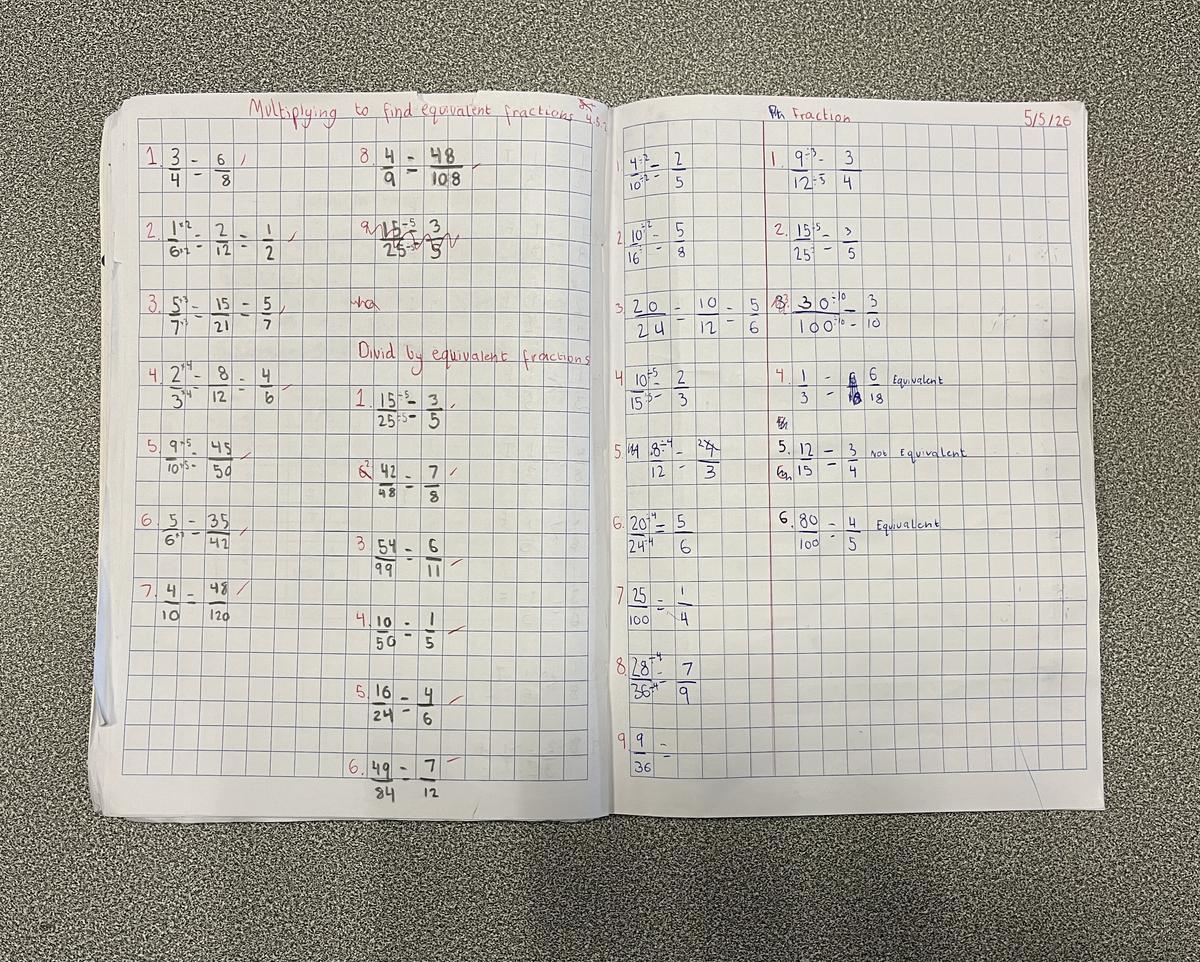 Multiplying to find equivalent fractions 4.5.2
1. 3/4 = 6/8
2. 1×2/6×2 = 2/12 = 1/2
3. 5×3/7×3 = 15/21 = 5/7
4. 2×4/3×4 = 8/12 = 4/6
5. 9×5/10×5 = 45/50
6. 5/6×7 = 35/42
7. 4/10 = 48/120
8. 4/9 = 48/108
9. 15÷5/25÷5 = 3/5
Divid by equivalent fractions
1. 15÷5/25÷5 = 3/5
2 42/48 = 7/8
3 54/99 = 6/11
4. 10/50 = 1/5
5. 16/24 = 4/6
6. 49/84 = 7/12
Fraction 5/5/26
1. 4÷2/10÷2 = 2/5
2 10÷2/16 = 5/8
3. 20/24 = 10/12 = 5/6
4 10÷5/15÷5 = 2/3
5. 8÷4/12 = 2/3
6. 20÷4/24÷4 = 5/6
7 25/100 = 1/4
8. 28÷4/36÷4 = 7/9
9. 9/36 =
1. 9÷3/12÷3 = 3/4
2. 15÷5/25÷ = 3/5
3. 30÷10/100÷10 = 3/10
4. 1/3 = 6/18 Equivalent
5. 12/15 = 3/4 Not Equivalent
6. 80/100 = 4/5 Equivalent